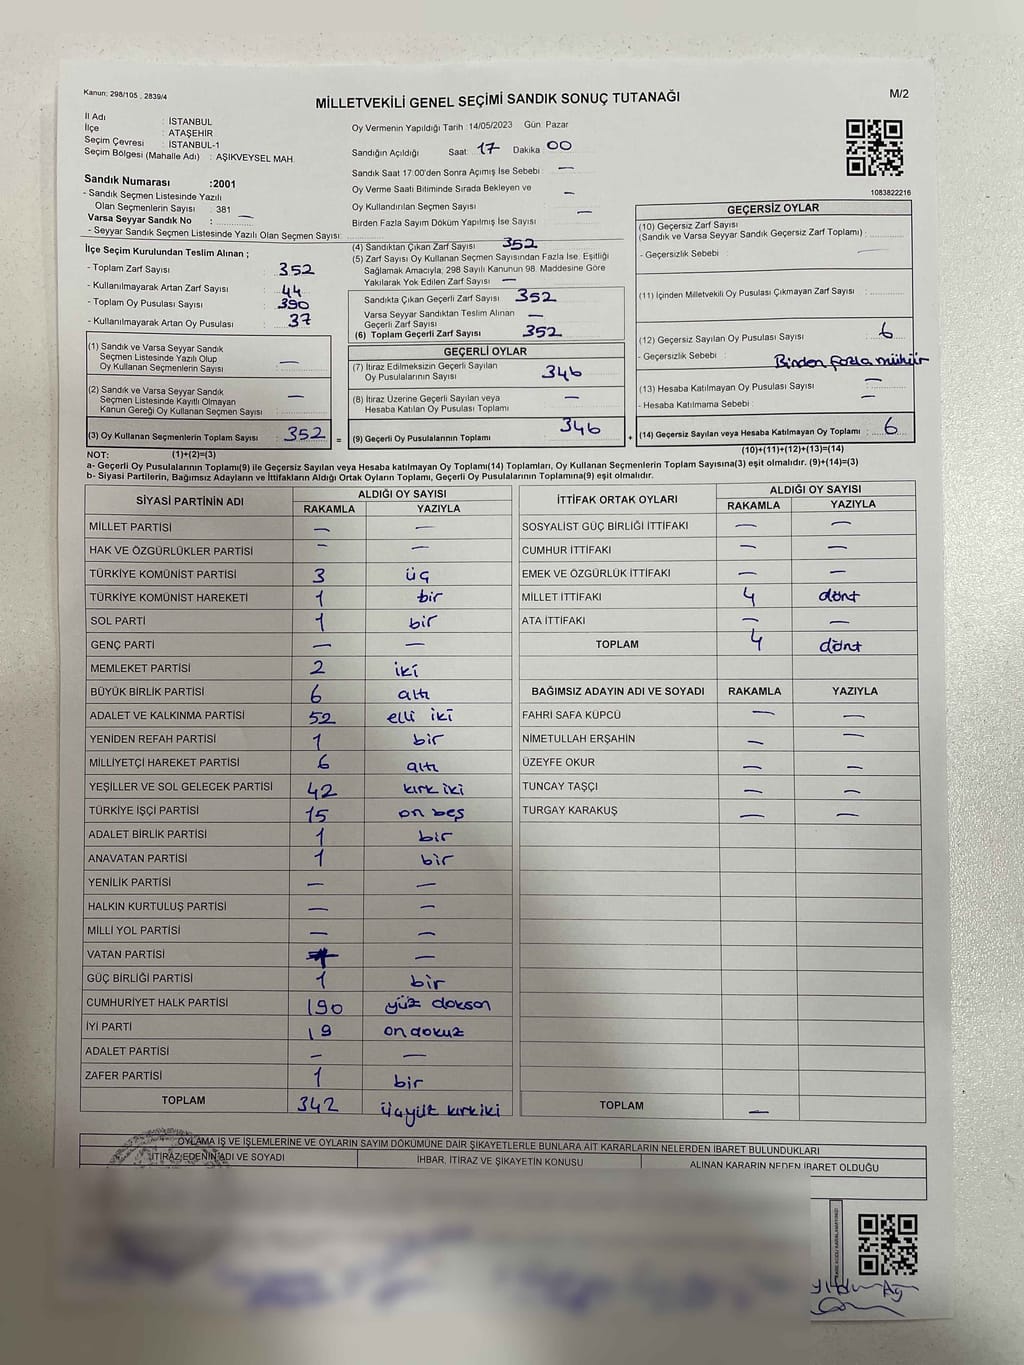 Kanun: 298/105 , 2839/4
MİLLETVEKİLİ GENEL SEÇİMİ SANDIK SONUÇ TUTANAĞI
M/2
İl Adı : İSTANBUL
İlçe : ATAŞEHİR
Seçim Çevresi : İSTANBUL-1
Seçim Bölgesi (Mahalle Adı) : AŞIKVEYSEL MAH.
Sandık Numarası :2001
- Sandık Seçmen Listesinde Yazılı
Olan Seçmenlerin Sayısı : 381
Varsa Seyyar Sandık No : —
- Seyyar Sandık Seçmen Listesinde Yazılı Olan Seçmen Sayısı:
Oy Vermenin Yapıldığı Tarih :14/05/2023 Gün: Pazar
Sandığın Açıldığı Saat: 17 Dakika: 00
Sandık Saat 17:00'den Sonra Açımış İse Sebebi : —
Oy Verme Saati Bitiminde Sırada Bekleyen ve —
Oy Kullandırılan Seçmen Sayısı —
Birden Fazla Sayım Döküm Yapılmış İse Sayısı
1083822216
İlçe Seçim Kurulundan Teslim Alınan ;
- Toplam Zarf Sayısı : 352
- Kullanılmayarak Artan Zarf Sayısı : 44
- Toplam Oy Pusulası Sayısı : 390
- Kullanılmayarak Artan Oy Pusulası : 37
(1) Sandık ve Varsa Seyyar Sandık
Seçmen Listesinde Yazılı Olup
Oy Kullanan Seçmenlerin Sayısı : —
(2) Sandık ve Varsa Seyyar Sandık
Seçmen Listesinde Kayıtlı Olmayan
Kanun Gereği Oy Kullanan Seçmen Sayısı : —
(3) Oy Kullanan Seçmenlerin Toplam Sayısı : 352 =
(4) Sandıktan Çıkan Zarf Sayısı : 352
(5) Zarf Sayısı Oy Kullanan Seçmen Sayısından Fazla İse, Eşitliği
Sağlamak Amacıyla; 298 Sayılı Kanunun 98. Maddesine Göre
Yakılarak Yok Edilen Zarf Sayısı : —
Sandıkta Çıkan Geçerli Zarf Sayısı : 352
Varsa Seyyar Sandıktan Teslim Alınan
Geçerli Zarf Sayısı : —
(6) Toplam Geçerli Zarf Sayısı : 352
GEÇERLİ OYLAR
(7) İtiraz Edilmeksizin Geçerli Sayılan
Oy Pusulalarının Sayısı : 346
(8) İtiraz Üzerine Geçerli Sayılan veya
Hesaba Katılan Oy Pusulası Toplamı : —
(9) Geçerli Oy Pusulalarının Toplamı : 346 +
GEÇERSİZ OYLAR
(10) Geçersiz Zarf Sayısı
(Sandık ve Varsa Seyyar Sandık Geçersiz Zarf Toplamı) :
- Geçersizlik Sebebi : —
(11) İçinden Milletvekili Oy Pusulası Çıkmayan Zarf Sayısı :
(12) Geçersiz Sayılan Oy Pusulası Sayısı : 6
- Geçersizlik Sebebi : Birden fazla mühür
(13) Hesaba Katılmayan Oy Pusulası Sayısı : —
- Hesaba Katılmama Sebebi : —
(14) Geçersiz Sayılan veya Hesaba Katılmayan Oy Toplamı : 6
NOT: (1)+(2)=(3)
(10)+(11)+(12)+(13)=(14)
a- Geçerli Oy Pusulalarının Toplamı(9) ile Geçersiz Sayılan veya Hesaba katılmayan Oy Toplamı(14) Toplamları, Oy Kullanan Seçmenlerin Toplam Sayısına(3) eşit olmalıdır. (9)+(14)=(3)
b- Siyasi Partilerin, Bağımsız Adayların ve İttifakların Aldığı Ortak Oyların Toplamı, Geçerli Oy Pusulalarının Toplamına(9) eşit olmalıdır.
SİYASİ PARTİNİN ADI ALDIĞI OY SAYISI
RAKAMLA YAZIYLA
MİLLET PARTİSİ — —
HAK VE ÖZGÜRLÜKLER PARTİSİ — —
TÜRKİYE KOMÜNİST PARTİSİ 3 üç
TÜRKİYE KOMÜNİST HAREKETİ 1 bir
SOL PARTİ 1 bir
GENÇ PARTİ — —
MEMLEKET PARTİSİ 2 iki
BÜYÜK BİRLİK PARTİSİ 6 altı
ADALET VE KALKINMA PARTİSİ 52 elli iki
YENİDEN REFAH PARTİSİ 1 bir
MİLLİYETÇİ HAREKET PARTİSİ 6 altı
YEŞİLLER VE SOL GELECEK PARTİSİ 42 kırk iki
TÜRKİYE İŞÇİ PARTİSİ 15 on beş
ADALET BİRLİK PARTİSİ 1 bir
ANAVATAN PARTİSİ 1 bir
YENİLİK PARTİSİ — —
HALKIN KURTULUŞ PARTİSİ — —
MİLLİ YOL PARTİSİ — —
VATAN PARTİSİ —
GÜÇ BİRLİĞİ PARTİSİ 1 bir
CUMHURİYET HALK PARTİSİ 190 yüz doksan
İYİ PARTİ 19 on dokuz
ADALET PARTİSİ — —
ZAFER PARTİSİ 1 bir
TOPLAM 342 üçyüz kırkiki
İTTİFAK ORTAK OYLARI ALDIĞI OY SAYISI
RAKAMLA YAZIYLA
SOSYALİST GÜÇ BİRLİĞİ İTTİFAKI — —
CUMHUR İTTİFAKI — —
EMEK VE ÖZGÜRLÜK İTTİFAKI — —
MİLLET İTTİFAKI 4 dört
ATA İTTİFAKI — —
TOPLAM 4 dört
BAĞIMSIZ ADAYIN ADI VE SOYADI RAKAMLA YAZIYLA
FAHRİ SAFA KÜPCÜ — —
NİMETULLAH ERŞAHİN — —
ÜZEYFE OKUR — —
TUNCAY TAŞÇI — —
TURGAY KARAKUŞ — —
TOPLAM —
OYLAMA İŞ VE İŞLEMLERİNE VE OYLARIN SAYIM DÖKÜMÜNE DAİR ŞİKAYETLERLE BUNLARA AİT KARARLARIN NELERDEN İBARET BULUNDUKLARI
İTİRAZ EDENİN ADI VE SOYADI İHBAR, İTİRAZ VE ŞİKAYETİN KONUSU ALINAN KARARIN NEDEN İBARET OLDUĞU